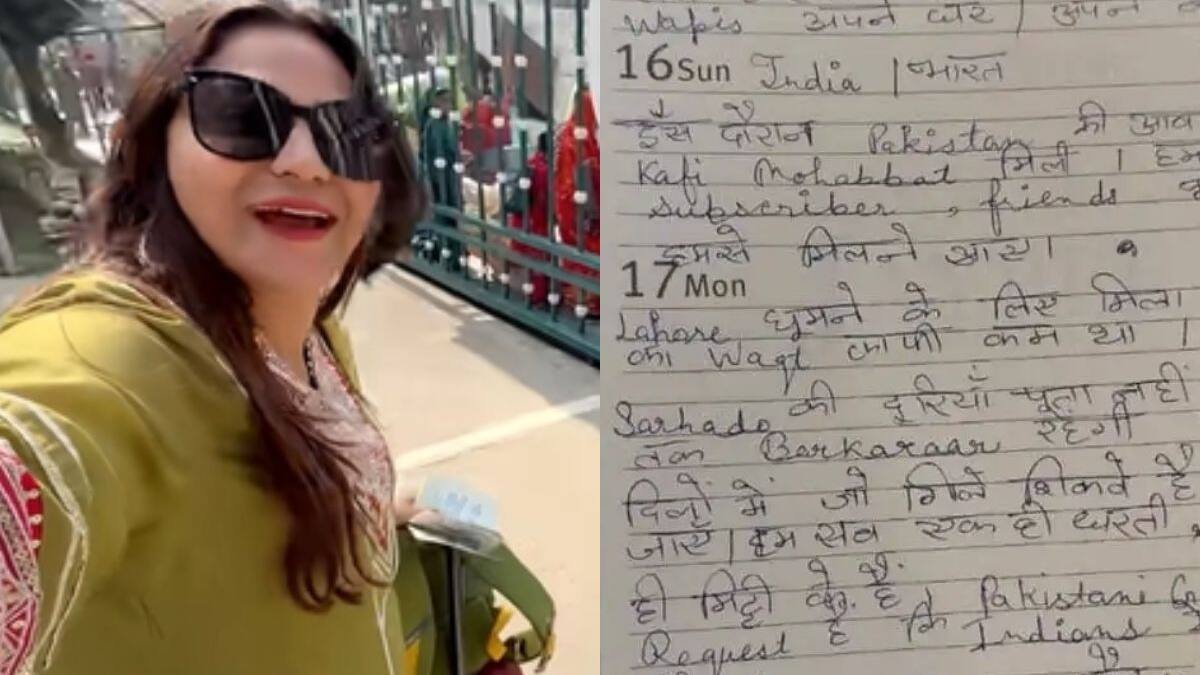 Wapis अपने घर / अपने
16 Sun India / भारत
इस दौरान Pakistan की आव
Kafi Mohabbat मिली । हम
subscriber, friends
हमसे मिलने आए।
17 Mon
Lahore घूमने के लिए मिला
का Waqt काफी कम था ।
Sarhado की दूरियाँ पता नहीं
तक Barkaraar रहेगी
दिलों में जो गिले शिकवे है
जाएँ । हम सब एक ही धरती,
ही मिट्टी के है, Pakistani
Request है कि Indians